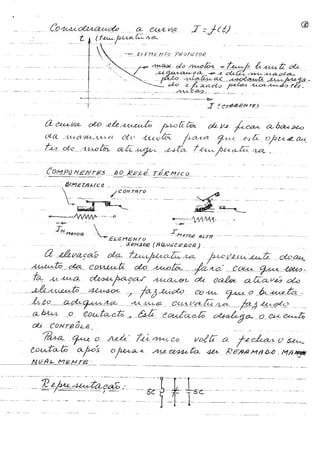 Considerando a curva I = f(t)
t (temperatura
ELEMENTO PROTETOR
max. do motor - temp. limite de
segurança - é determinada
pelo material isolante emprega-
do e fixado pelas normas téc.
nicas.
I (CORRENTE)
A curva do elemento protetor deve ficar abaixo
da máxima do motor para que este opere an
tes do motor atingir esta temperatura.
COMPONENTES DO RELÉ TÉRMICO
BIMETALICO
CONTATO
I MENOR
ELEMENTO
SENSOR (AQUECEDOR)
I MAIS ALTA
A elevação da temperatura, proveniente do au
mento da corrente do motor fará com que exis.
ta uma dissipação maior de calor através do
elemento sensor, fazendo com que o bimeta-
lico adquira uma curvatura fazendo
abrir o contacto. Este contacto desliga o circuito
de CONTROLE.
Para que o relé térmico volte a fechar o seu
contato após operar necessita ser REARMADO MA
NUALMENTE.
Representação:
SC SC